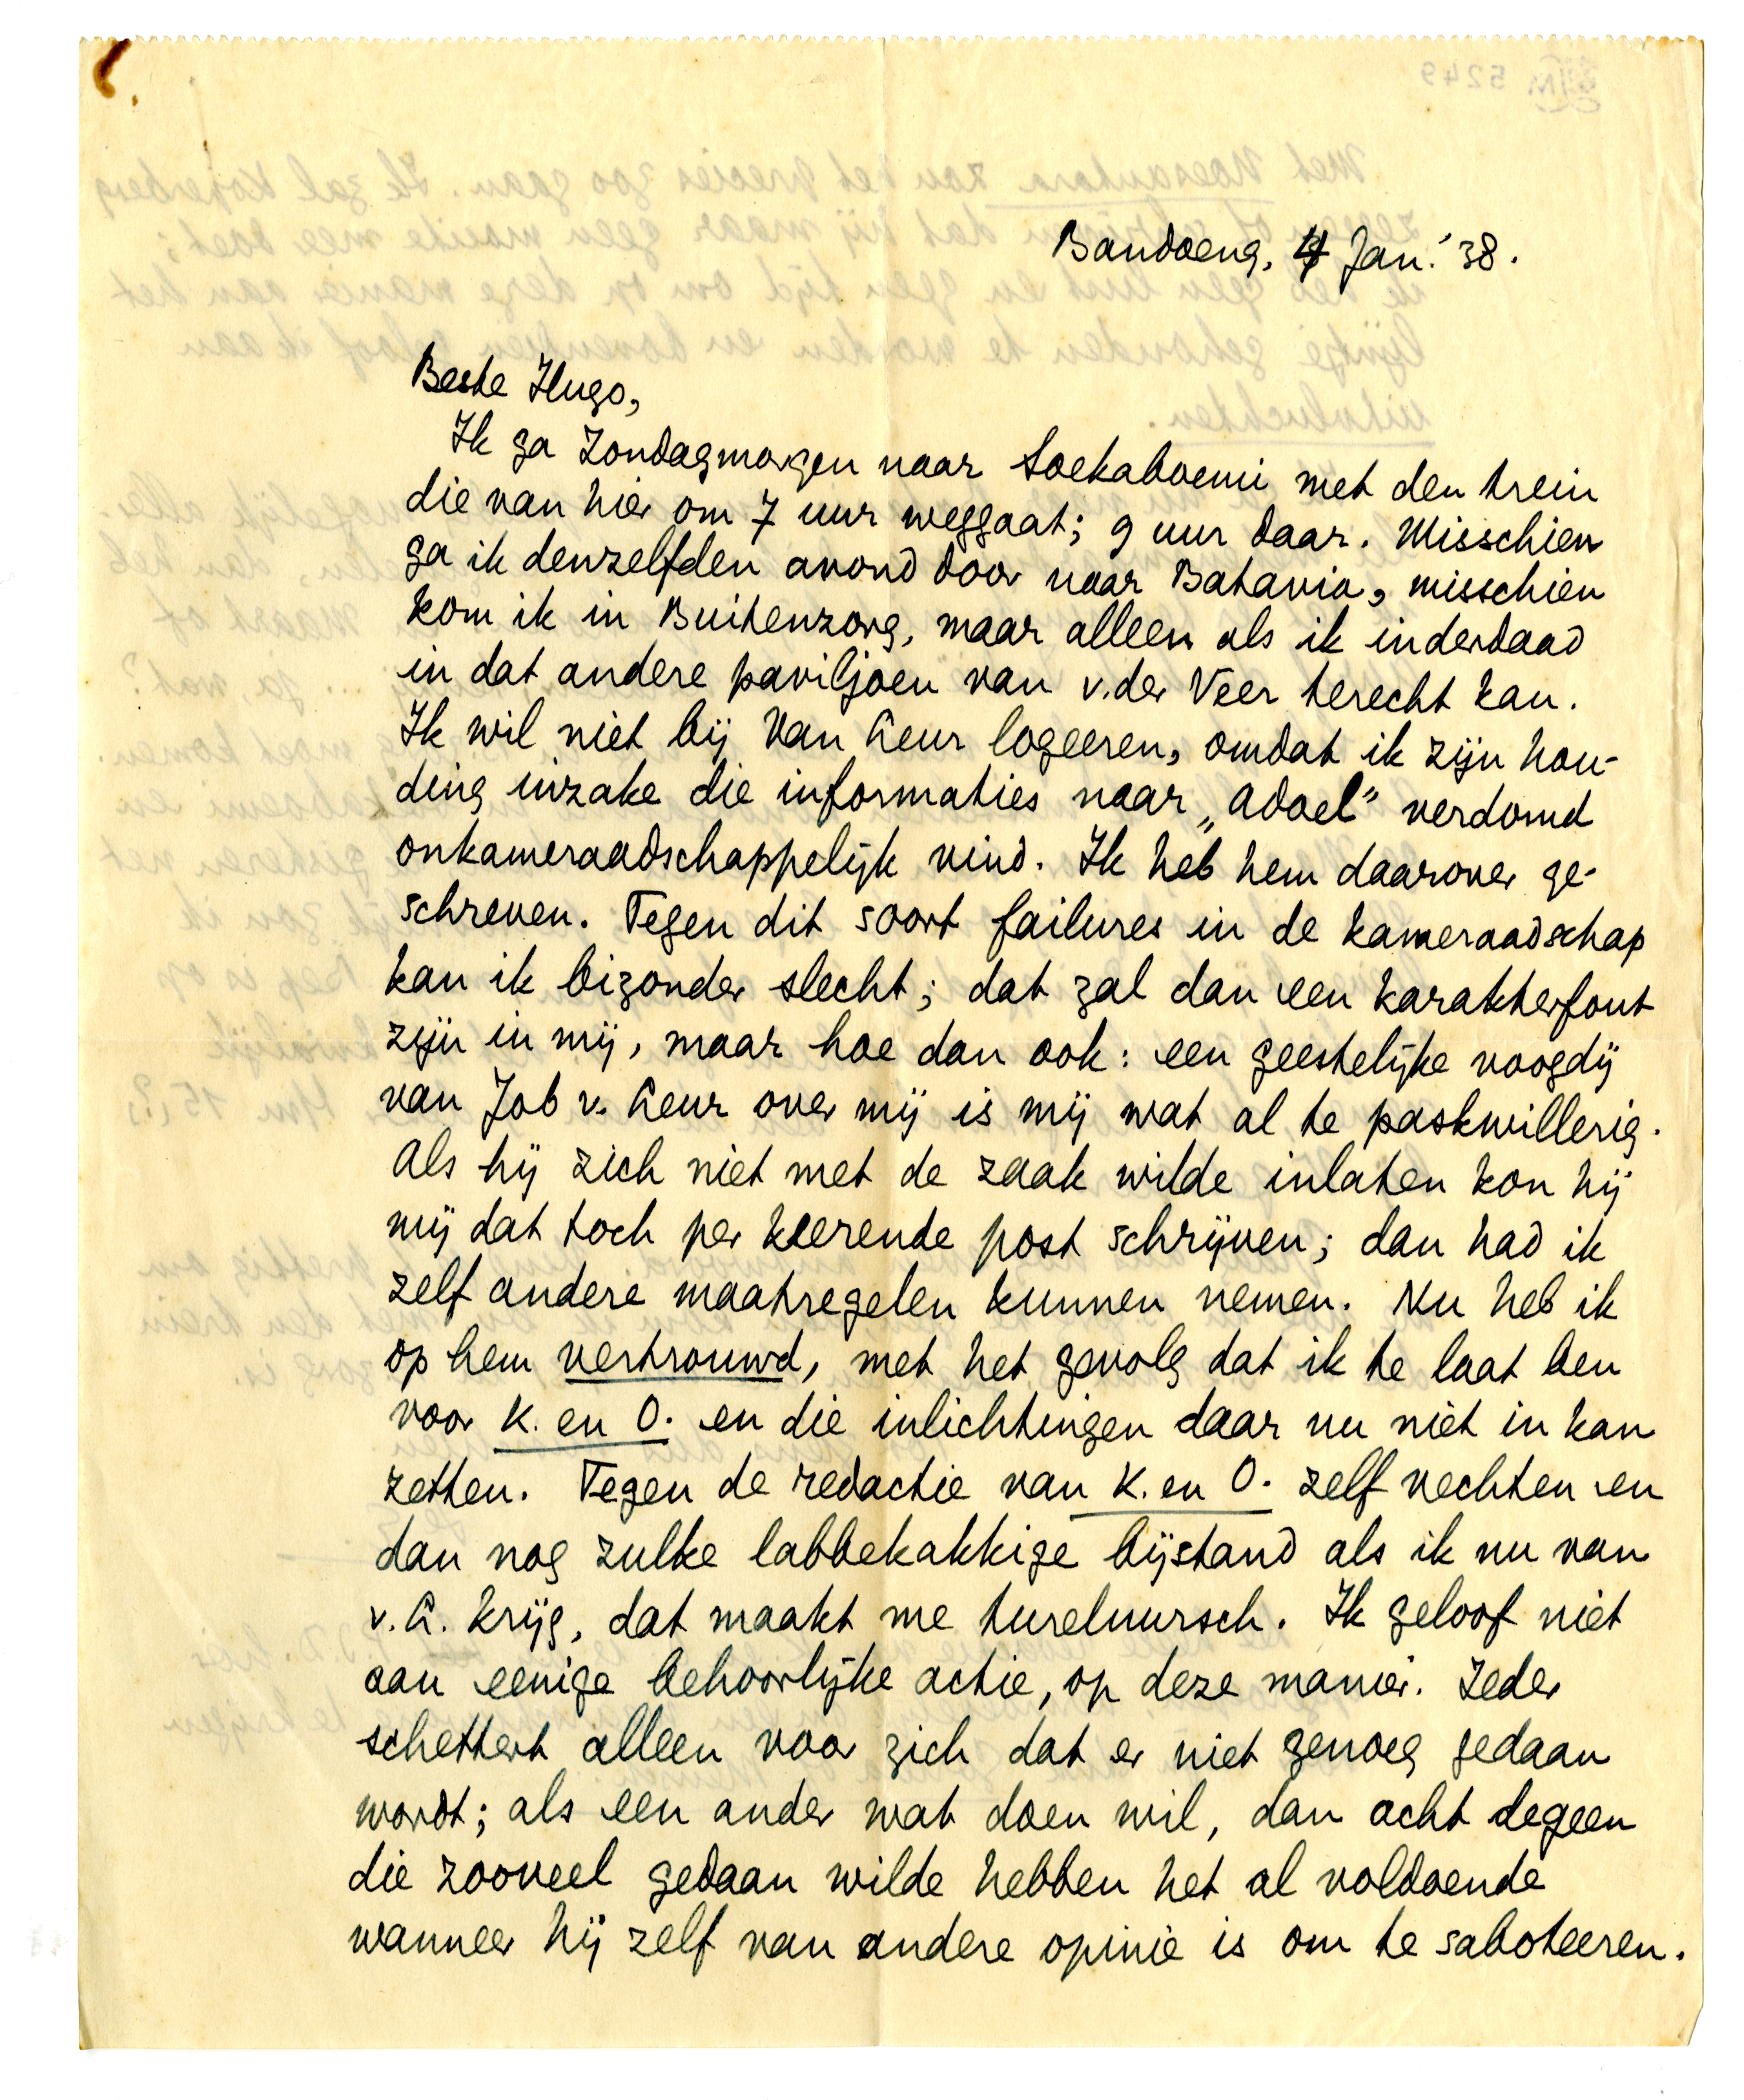 Bandoeng, 4 Jan. '38.
Beste Hugo,
Ik ga Zondagmorgen naar Soekaboemi met den trein
die van hier om 7 uur weggaat; 9 uur daar. Misschien
ga ik denzelfden avond door naar Batavia, misschien
kom ik in Buitenzorg, maar alleen als ik inderdaad
in dat andere paviljoen van v. der Veer terecht kan.
Ik wil niet bij Van Leur logeeren, omdat ik zijn hou-
ding inzake die informaties naar „Adoel" verdomd
onkameraadschappelijk vind. Ik heb hem daarover ge-
schreven. Tegen dit soort failures in de kameraadschap
kan ik bizonder slecht; dat zal dan een karakterfout
zijn in mij, maar hoe dan ook: een geestelijke voogdij
van Job v. Leur over mij is mij wat al te paskwillerig.
Als hij zich niet met de zaak wilde inlaten kon hij
mij dat toch per keerende post schrijven; dan had ik
zelf andere maatregelen kunnen nemen. Nu heb ik
op hem vertrouwd, met het gevolg dat ik te laat ben
voor K. en O. en die inlichtingen daar nu niet in kan
zetten. Tegen de redactie van K. en O. zelf vechten en
dan nog zulke labbekakkige bijstand als ik nu van
v. L. krijg, dat maakt me tureluursch. Ik geloof niet
aan eenige behoorlijke actie, op deze manier. Ieder
schettert alleen voor zich dat er niet genoeg gedaan
wordt; als een ander wat doen wil, dan acht degeen
die zooveel gedaan wilde hebben het al voldoende
wanneer hij zelf van andere opinie is om te saboteeren.